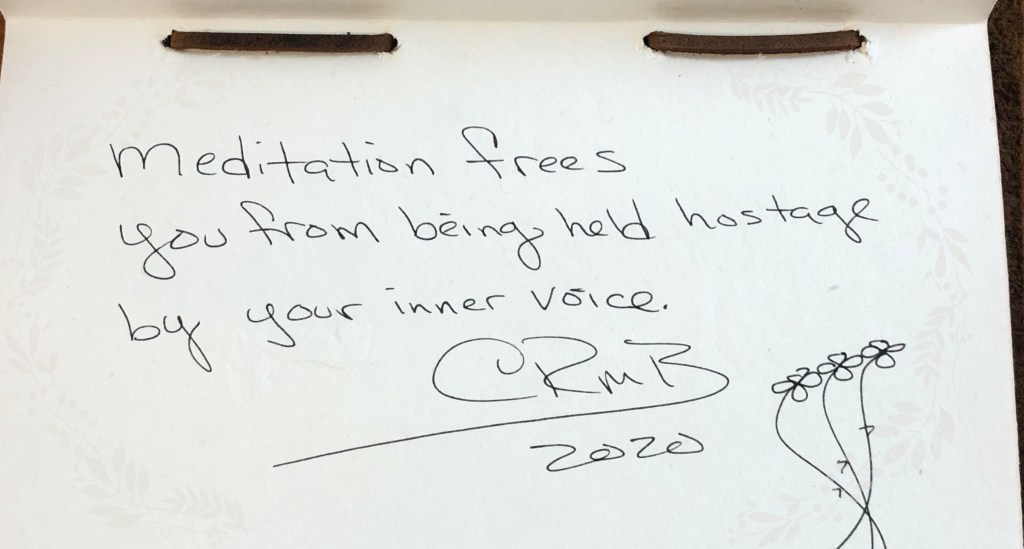 Meditation frees
you from being held hostage
by your inner voice.
CRMB
2020